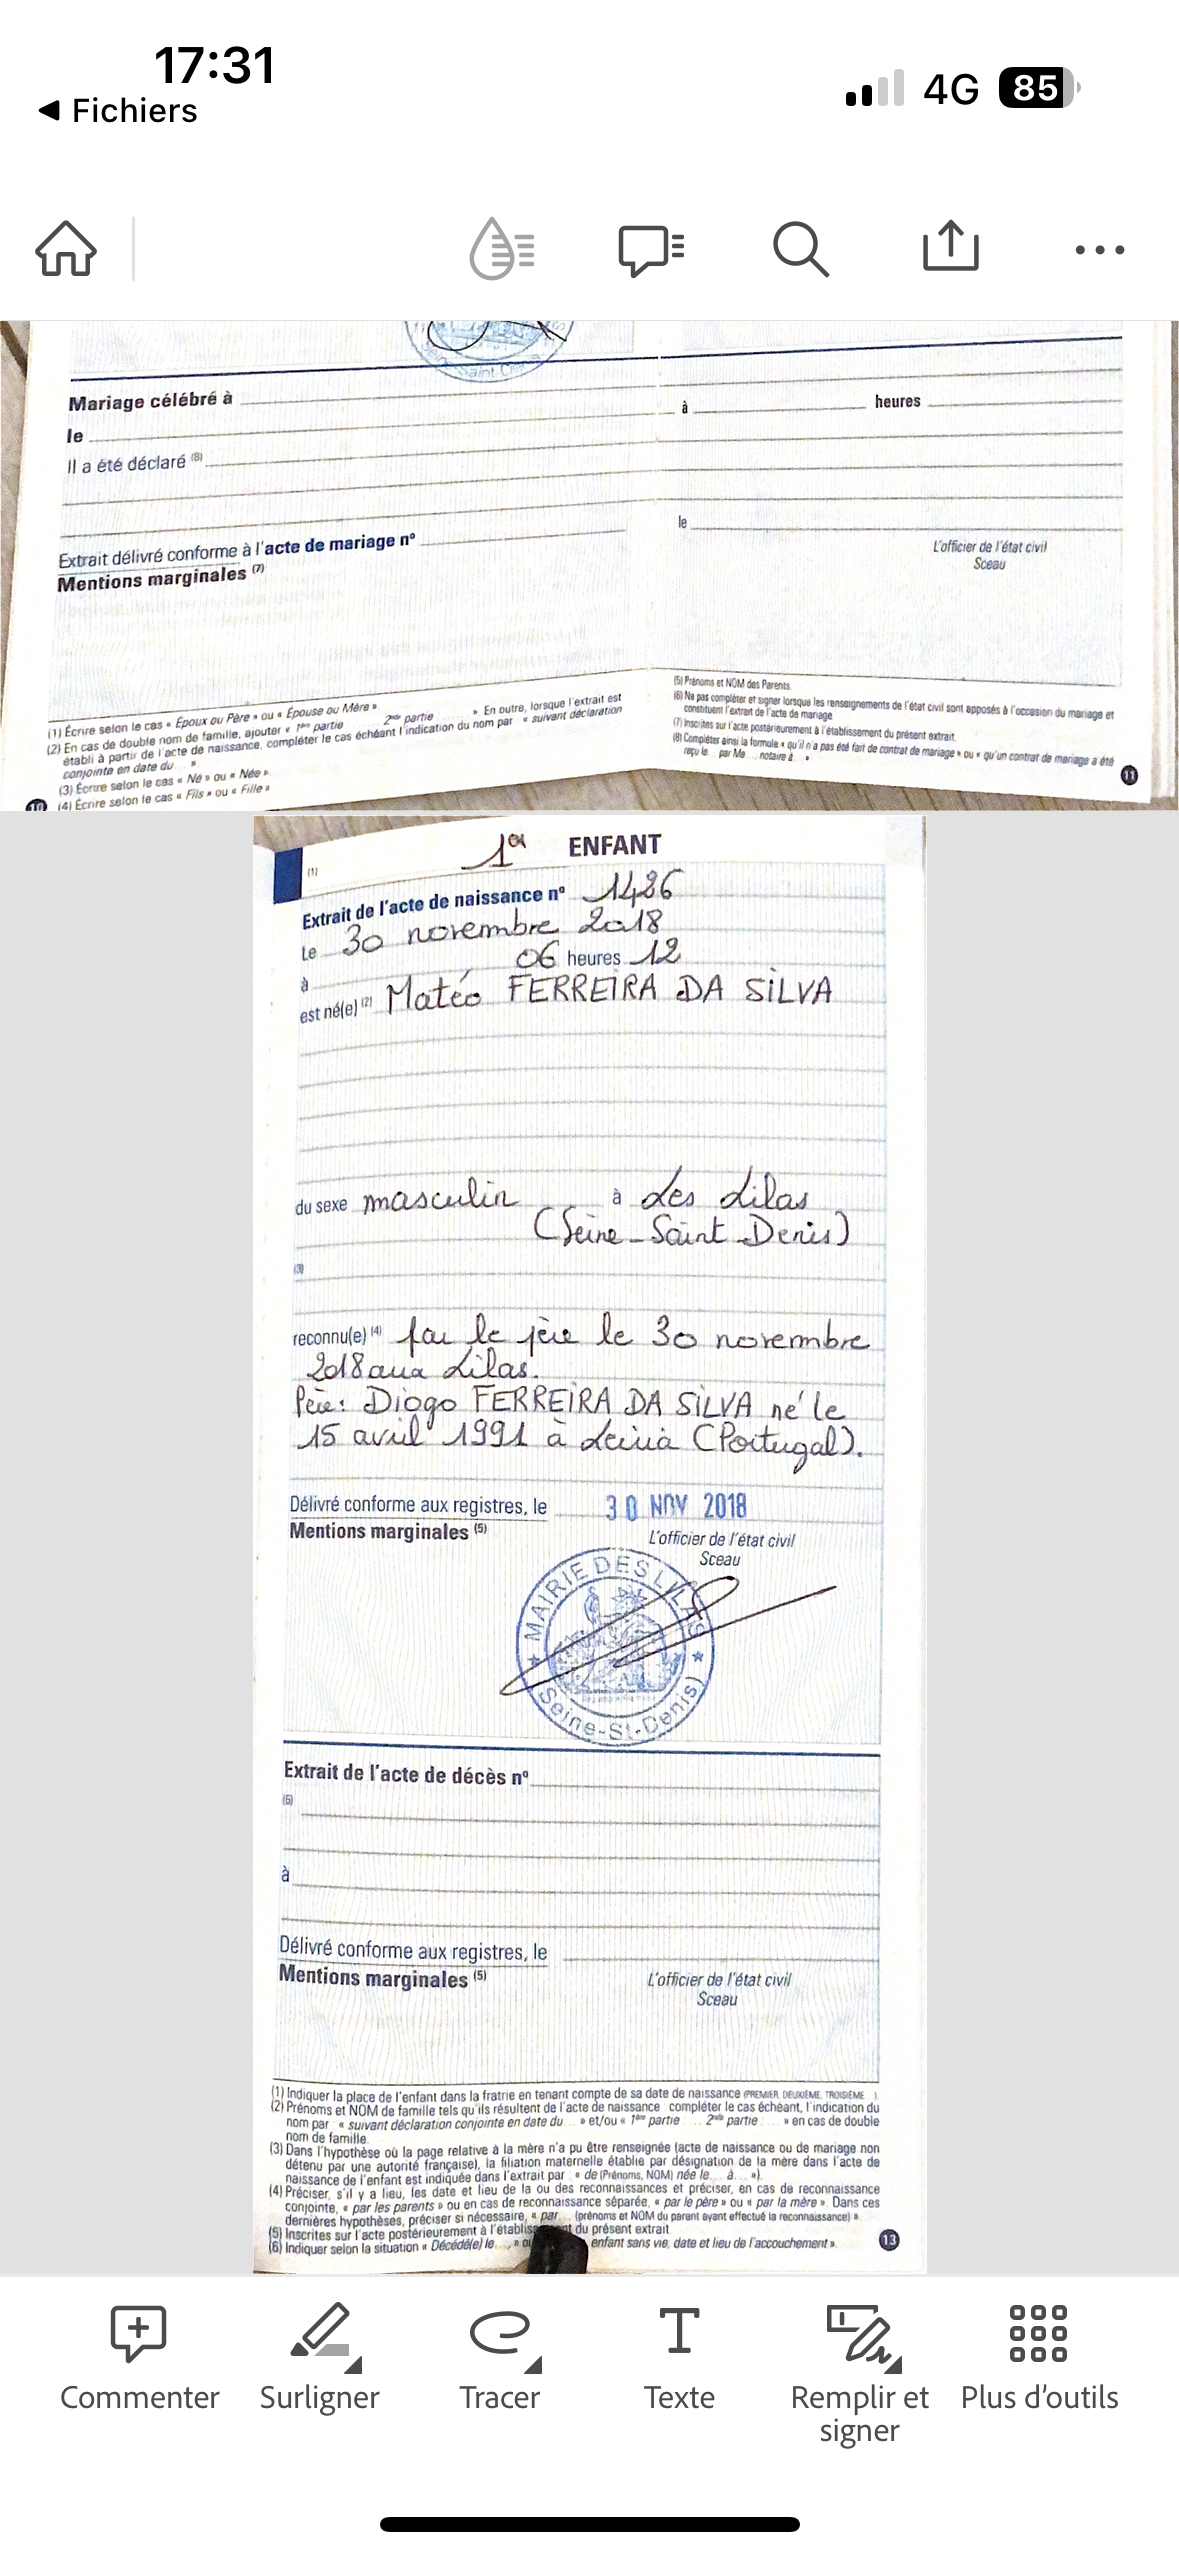 17:31
Fichiers
4G
85
Saint
Mariage célébré à
à heures
le
Il a été déclaré (8)
Extrait délivré conforme à l'acte de mariage n°
le
Mentions marginales (7)
L'officier de l'état civil
Sceau
(1) Écrire selon le cas « Époux ou Père » ou « Épouse ou Mère »
(2) En cas de double nom de famille, ajouter « 1ère partie 2nde partie » En outre, lorsque l'extrait est
établi à partir de l'acte de naissance, compléter le cas échéant l'indication du nom par « suivant déclaration
conjointe en date du ... »
(3) Écrire selon le cas « Né » ou « Née »
(4) Écrire selon le cas « Fils » ou « Fille »
10
(5) Prénoms et NOM des Parents
(6) Ne pas compléter et signer lorsque les renseignements de l'état civil sont apposés à l'occasion du mariage et
constituent l'extrait de l'acte de mariage
(7) Inscrites sur l'acte postérieurement à l'établissement du présent extrait
(8) Compléter ainsi la formule « qu'il n'a pas été fait de contrat de mariage » ou « qu'un contrat de mariage a été
reçu le... par Me... notaire à... »
11
(1) 1er ENFANT
Extrait de l'acte de naissance n° 1426
Le 30 novembre 2018
à 06 heures 12
est né(e) (2) Matéo FERREIRA DA SILVA
du sexe masculin à Les Lilas
(Seine-Saint Denis)
(3)
reconnu(e) (4) par le père le 30 novembre
2018 aux Lilas.
Père: Diogo FERREIRA DA SILVA né le
15 avril 1991 à Leiria (Portugal).
Délivré conforme aux registres, le 30 NOV 2018
Mentions marginales (5)
L'officier de l'état civil
Sceau
MAIRIE DES LILAS
(Seine-St-Denis)
Extrait de l'acte de décès n°
(6)
à
Délivré conforme aux registres, le
Mentions marginales (5)
L'officier de l'état civil
Sceau
(1) Indiquer la place de l'enfant dans la fratrie en tenant compte de sa date de naissance (PREMIER, DEUXIÈME, TROISIÈME ...).
(2) Prénoms et NOM de famille tels qu'ils résultent de l'acte de naissance : compléter le cas échéant, l'indication du
nom par : « suivant déclaration conjointe en date du ... » et/ou « 1ère partie : ... 2nde partie : ... » en cas de double
nom de famille.
(3) Dans l'hypothèse où la page relative à la mère n'a pu être renseignée (acte de naissance ou de mariage non
détenu par une autorité française), la filiation maternelle établie par désignation de la mère dans l'acte de
naissance de l'enfant est indiquée dans l'extrait par : « de (Prénoms, NOM) née le... à... »).
(4) Préciser, s'il y a lieu, les date et lieu de la ou des reconnaissances et préciser, en cas de reconnaissance
conjointe, « par les parents » ou en cas de reconnaissance séparée, « par le père » ou « par la mère ». Dans ces
dernières hypothèses, préciser si nécessaire, « par ... (prénoms et NOM du parent ayant effectué la reconnaissance) ».
(5) Inscrites sur l'acte postérieurement à l'établissement du présent extrait
(6) Indiquer selon la situation « Décédé(e) le ... , » ou enfant sans vie, date et lieu de l'accouchement ».
13
Commenter
Surligner
Tracer
Texte
Remplir et
signer
Plus d'outils